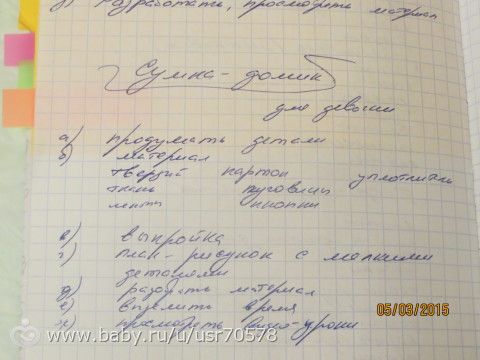 разработать, просмотреть материал
Сумка-домик
для девочки
а) продумать детали
б) материал
твердый картон уплотнитель
ткань пуговицы
ленты кнопки
в) выкройка
г) план-рисунок с мелкими
деталями
д) раздобыть материал
е) выделить время
ж) просмотреть видео-уроки
05/03/2015
www.baby.ru/u/usr70578